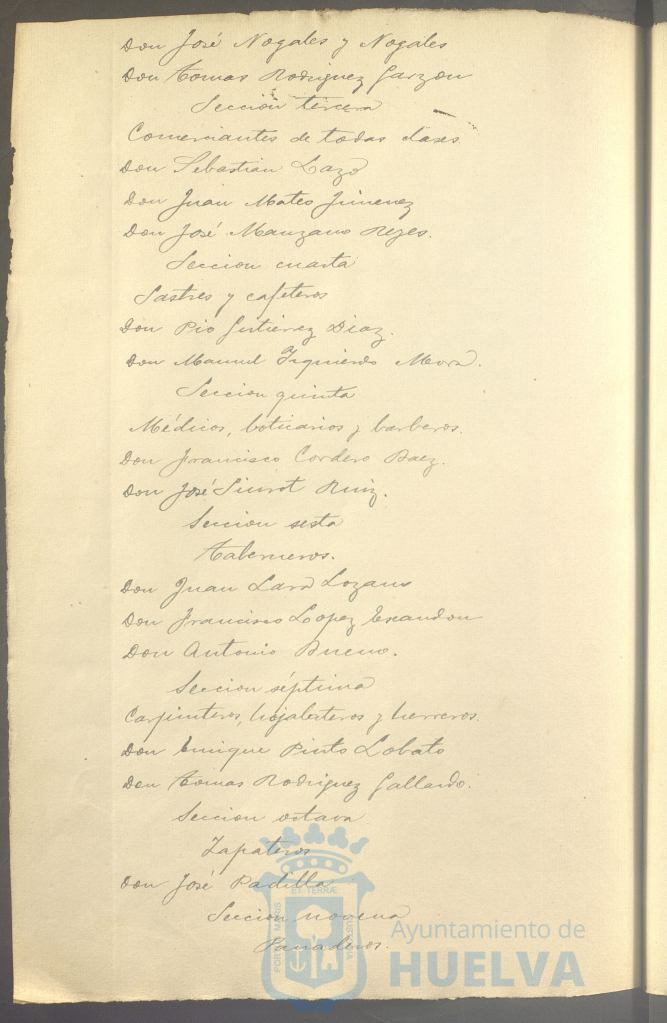 Don José Nogales y Nogales
Don Tomas Rodriguez Garzon
Seccion tercera
Comerciantes de todas clases
Don Sebastian Lazo
Don Juan Mateo Jimenez
Don José Manzano Reyes.
Seccion cuarta
Sastres y cafeteros
Don Pio Gutierrez Diaz.
Don Manuel Izquierdo Mora.
Seccion quinta
Médicos, boticarios y barberos.
Don Francisco Cordero Baez.
Don José Siurot Ruiz.
Seccion sesta
Taberneros.
Don Juan Lara Lozano
Don Francisco Lopez Escandon
Don Antonio Bueno.
Seccion séptima
Carpinteros, hojalateros y herreros.
Don Enrique Pinto Lobato
Don Tomas Rodriguez Gallardo.
Seccion octava
Zapateros
Don José Padilla
Seccion novena
Panaderos.
PORTUS MARIS ET TERRÆ CUSTODIA
Ayuntamiento de
HUELVA